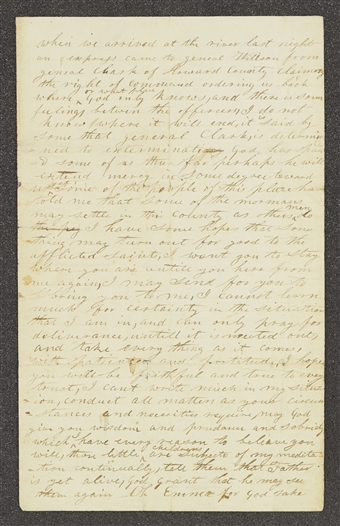 when we arrived at the river last night
an express came to general Willson from
general Clark of Howard County claiming
the right of command ordering us back
where or what place God only knows, and there is some
feelings between the officers, I do not
know where it will end, it is said by
some that general Clark, is determin
ned to exterminate God, has spared
some of us thus far perhaps he will
extend mercy in some degree toward
us some of the people of this place have
told me that some of the mormans
may settle in this county as others men do
I have some hopes that some
thing may turn out for good to the
afflicted saints, I want you to stay
where you are untill you here from
me again, I may send for you to
bring you to me, I cannot learn
much for certainty in the situation
that I am in, and can only pray for
deliverance, untill it is meeted out,
and take every thing as it comes,
with patience and fortitude, I hope
you will be faithful and true to every
trust, I cant write much in my situa
tion, conduct all matters as your circum
stances and necesities require, may God
give you wisdom and prudence and sobriety
which I have every reason to believe you
will, those little childrens are subjects of my medita
tion continually, tell them that Father
is yet alive, God grant that he may see
them again Oh Emma for God sake